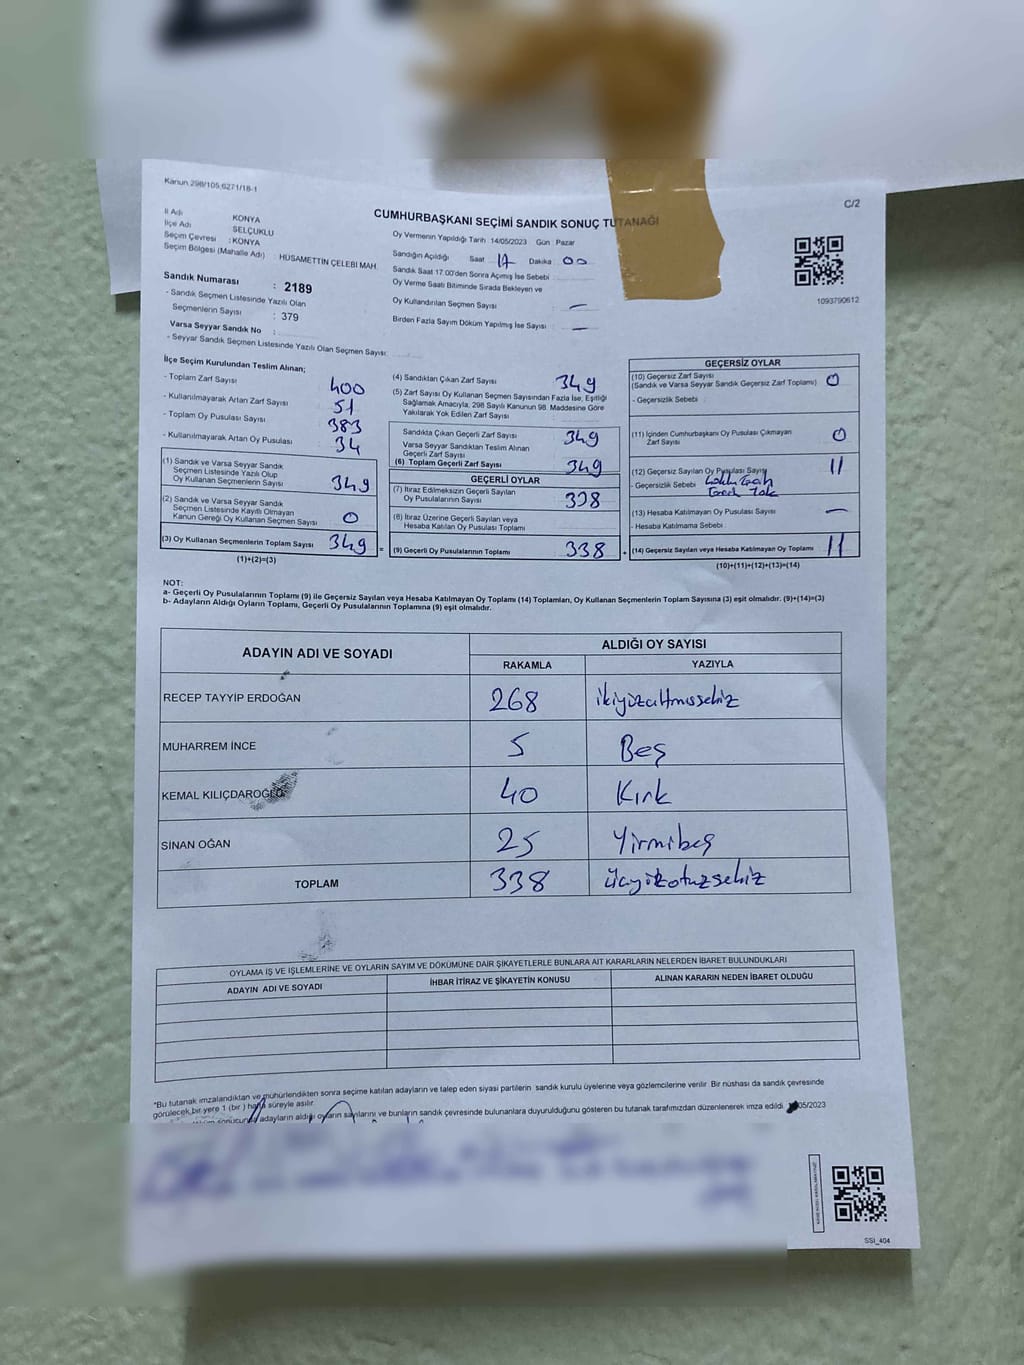 Kanun 298/105,6271/18-1
C/2
CUMHURBAŞKANI SEÇİMİ SANDIK SONUÇ TUTANAĞI
İl Adı KONYA
İlçe Adı SELÇUKLU
Seçim Çevresi : KONYA
Seçim Bölgesi (Mahalle Adı) : HÜSAMETTİN ÇELEBİ MAH
Sandık Numarası : 2189
- Sandık Seçmen Listesinde Yazılı Olan
Seçmenlerin Sayısı : 379
Varsa Seyyar Sandık No :
- Seyyar Sandık Seçmen Listesinde Yazılı Olan Seçmen Sayısı:
Oy Vermenin Yapıldığı Tarih 14/05/2023 Gün Pazar
Sandığın Açıldığı Saat 17 Dakika 00
Sandık Saat 17:00'den Sonra Açımış İse Sebebi
Oy Verme Saati Bitiminde Sırada Bekleyen ve
Oy Kullandırılan Seçmen Sayısı —
Birden Fazla Sayım Döküm Yapılmış İse Sayısı —
1093790612
İlçe Seçim Kurulundan Teslim Alınan;
- Toplam Zarf Sayısı 400
- Kullanılmayarak Artan Zarf Sayısı 51
- Toplam Oy Pusulası Sayısı 383
- Kullanılmayarak Artan Oy Pusulası 34
(1) Sandık ve Varsa Seyyar Sandık
Seçmen Listesinde Yazılı Olup
Oy Kullanan Seçmenlerin Sayısı 349
(2) Sandık ve Varsa Seyyar Sandık
Seçmen Listesinde Kayıtlı Olmayan
Kanun Gereği Oy Kullanan Seçmen Sayısı 0
(3) Oy Kullanan Seçmenlerin Toplam Sayısı 349 =
(1)+(2)=(3)
(4) Sandıktan Çıkan Zarf Sayısı 349
(5) Zarf Sayısı Oy Kullanan Seçmen Sayısından Fazla İse, Eşitliği
Sağlamak Amacıyla, 298 Sayılı Kanunun 98. Maddesine Göre
Yakılarak Yok Edilen Zarf Sayısı
Sandıkta Çıkan Geçerli Zarf Sayısı 349
Varsa Seyyar Sandıktan Teslim Alınan
Geçerli Zarf Sayısı
(6) Toplam Geçerli Zarf Sayısı 349
GEÇERLİ OYLAR
(7) İtiraz Edilmeksizin Geçerli Sayılan
Oy Pusulalarının Sayısı 338
(8) İtiraz Üzerine Geçerli Sayılan veya
Hesaba Katılan Oy Pusulası Toplamı
(9) Geçerli Oy Pusulalarının Toplamı 338 +
GEÇERSİZ OYLAR
(10) Geçersiz Zarf Sayısı
(Sandık ve Varsa Seyyar Sandık Geçersiz Zarf Toplamı) 0
- Geçersizlik Sebebi
(11) İçinden Cumhurbaşkanı Oy Pusulası Çıkmayan
Zarf Sayısı 0
(12) Geçersiz Sayılan Oy Pusulası Sayısı 11
- Geçersizlik Sebebi
(13) Hesaba Katılmayan Oy Pusulası Sayısı —
- Hesaba Katılmama Sebebi
(14) Geçersiz Sayılan veya Hesaba Katılmayan Oy Toplamı 11
(10)+(11)+(12)+(13)=(14)
NOT:
a- Geçerli Oy Pusulalarının Toplamı (9) ile Geçersiz Sayılan veya Hesaba Katılmayan Oy Toplamı (14) Toplamları, Oy Kullanan Seçmenlerin Toplam Sayısına (3) eşit olmalıdır. (9)+(14)=(3)
b- Adayların Aldığı Oyların Toplamı, Geçerli Oy Pusulalarının Toplamına (9) eşit olmalıdır.
ADAYIN ADI VE SOYADI
ALDIĞI OY SAYISI
RAKAMLA YAZIYLA
RECEP TAYYİP ERDOĞAN 268 ikiyüzaltmışsekiz
MUHARREM İNCE 5 Beş
KEMAL KILIÇDAROĞLU 40 Kırk
SİNAN OĞAN 25 Yirmibeş
TOPLAM 338 üçyüzotuzsekiz
OYLAMA İŞ VE İŞLEMLERİNE VE OYLARIN SAYIM VE DÖKÜMÜNE DAİR ŞİKAYETLERLE BUNLARA AİT KARARLARIN NELERDEN İBARET BULUNDUKLARI
ADAYIN ADI VE SOYADI İHBAR İTİRAZ VE ŞİKAYETİN KONUSU ALINAN KARARIN NEDEN İBARET OLDUĞU
*Bu tutanak imzalandıktan ve mühürlendikten sonra seçime katılan adayların ve talep eden siyasi partilerin sandık kurulu üyelerine veya gözlemcilerine verilir. Bir nüshası da sandık çevresinde
görülecek bir yere 1 (bir) hafta süreyle asılır.
sonucunda adayların aldığı oyların sayılarını ve bunların sandık çevresinde bulunanlara duyurulduğunu gösteren bu tutanak tarafımızdan düzenlenerek imza edildi. 05/2023
SSI_404